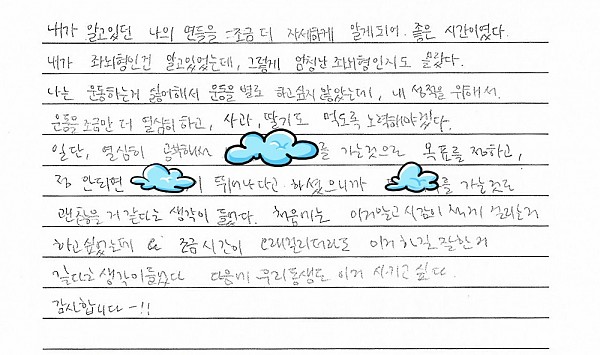 내가 알고있던 나의 면들을 조금 더 자세하게 알게되어 좋은 시간이였다.
내가 좌뇌형인건 알고있었는데, 그렇게 엄청난 좌뇌형인지도 몰랐다.
나는 운동하는게 싫어해서 운동을 별로 하고싶지 않았는데, 내 성적을 위해서
운동을 조금만 더 열심히 하고, 사과, 딸기도 먹도록 노력해야겠다.
일단, 열심히 공부해서 를 가는것으로 목표를 정하고,
정 안되면 이 뛰어나다고 하셨으니까 를 가는것도
괜찮을거 같다는 생각이 들었다. 처음에는 이거알고 시간이 걸리는거
하고싶었는데 조금 시간이 오래걸리더라도 이거 하길 잘한 거
같다는 생각이들었다 다음에 우리동생도 이거 시키고 싶다.
감사합니다~!!